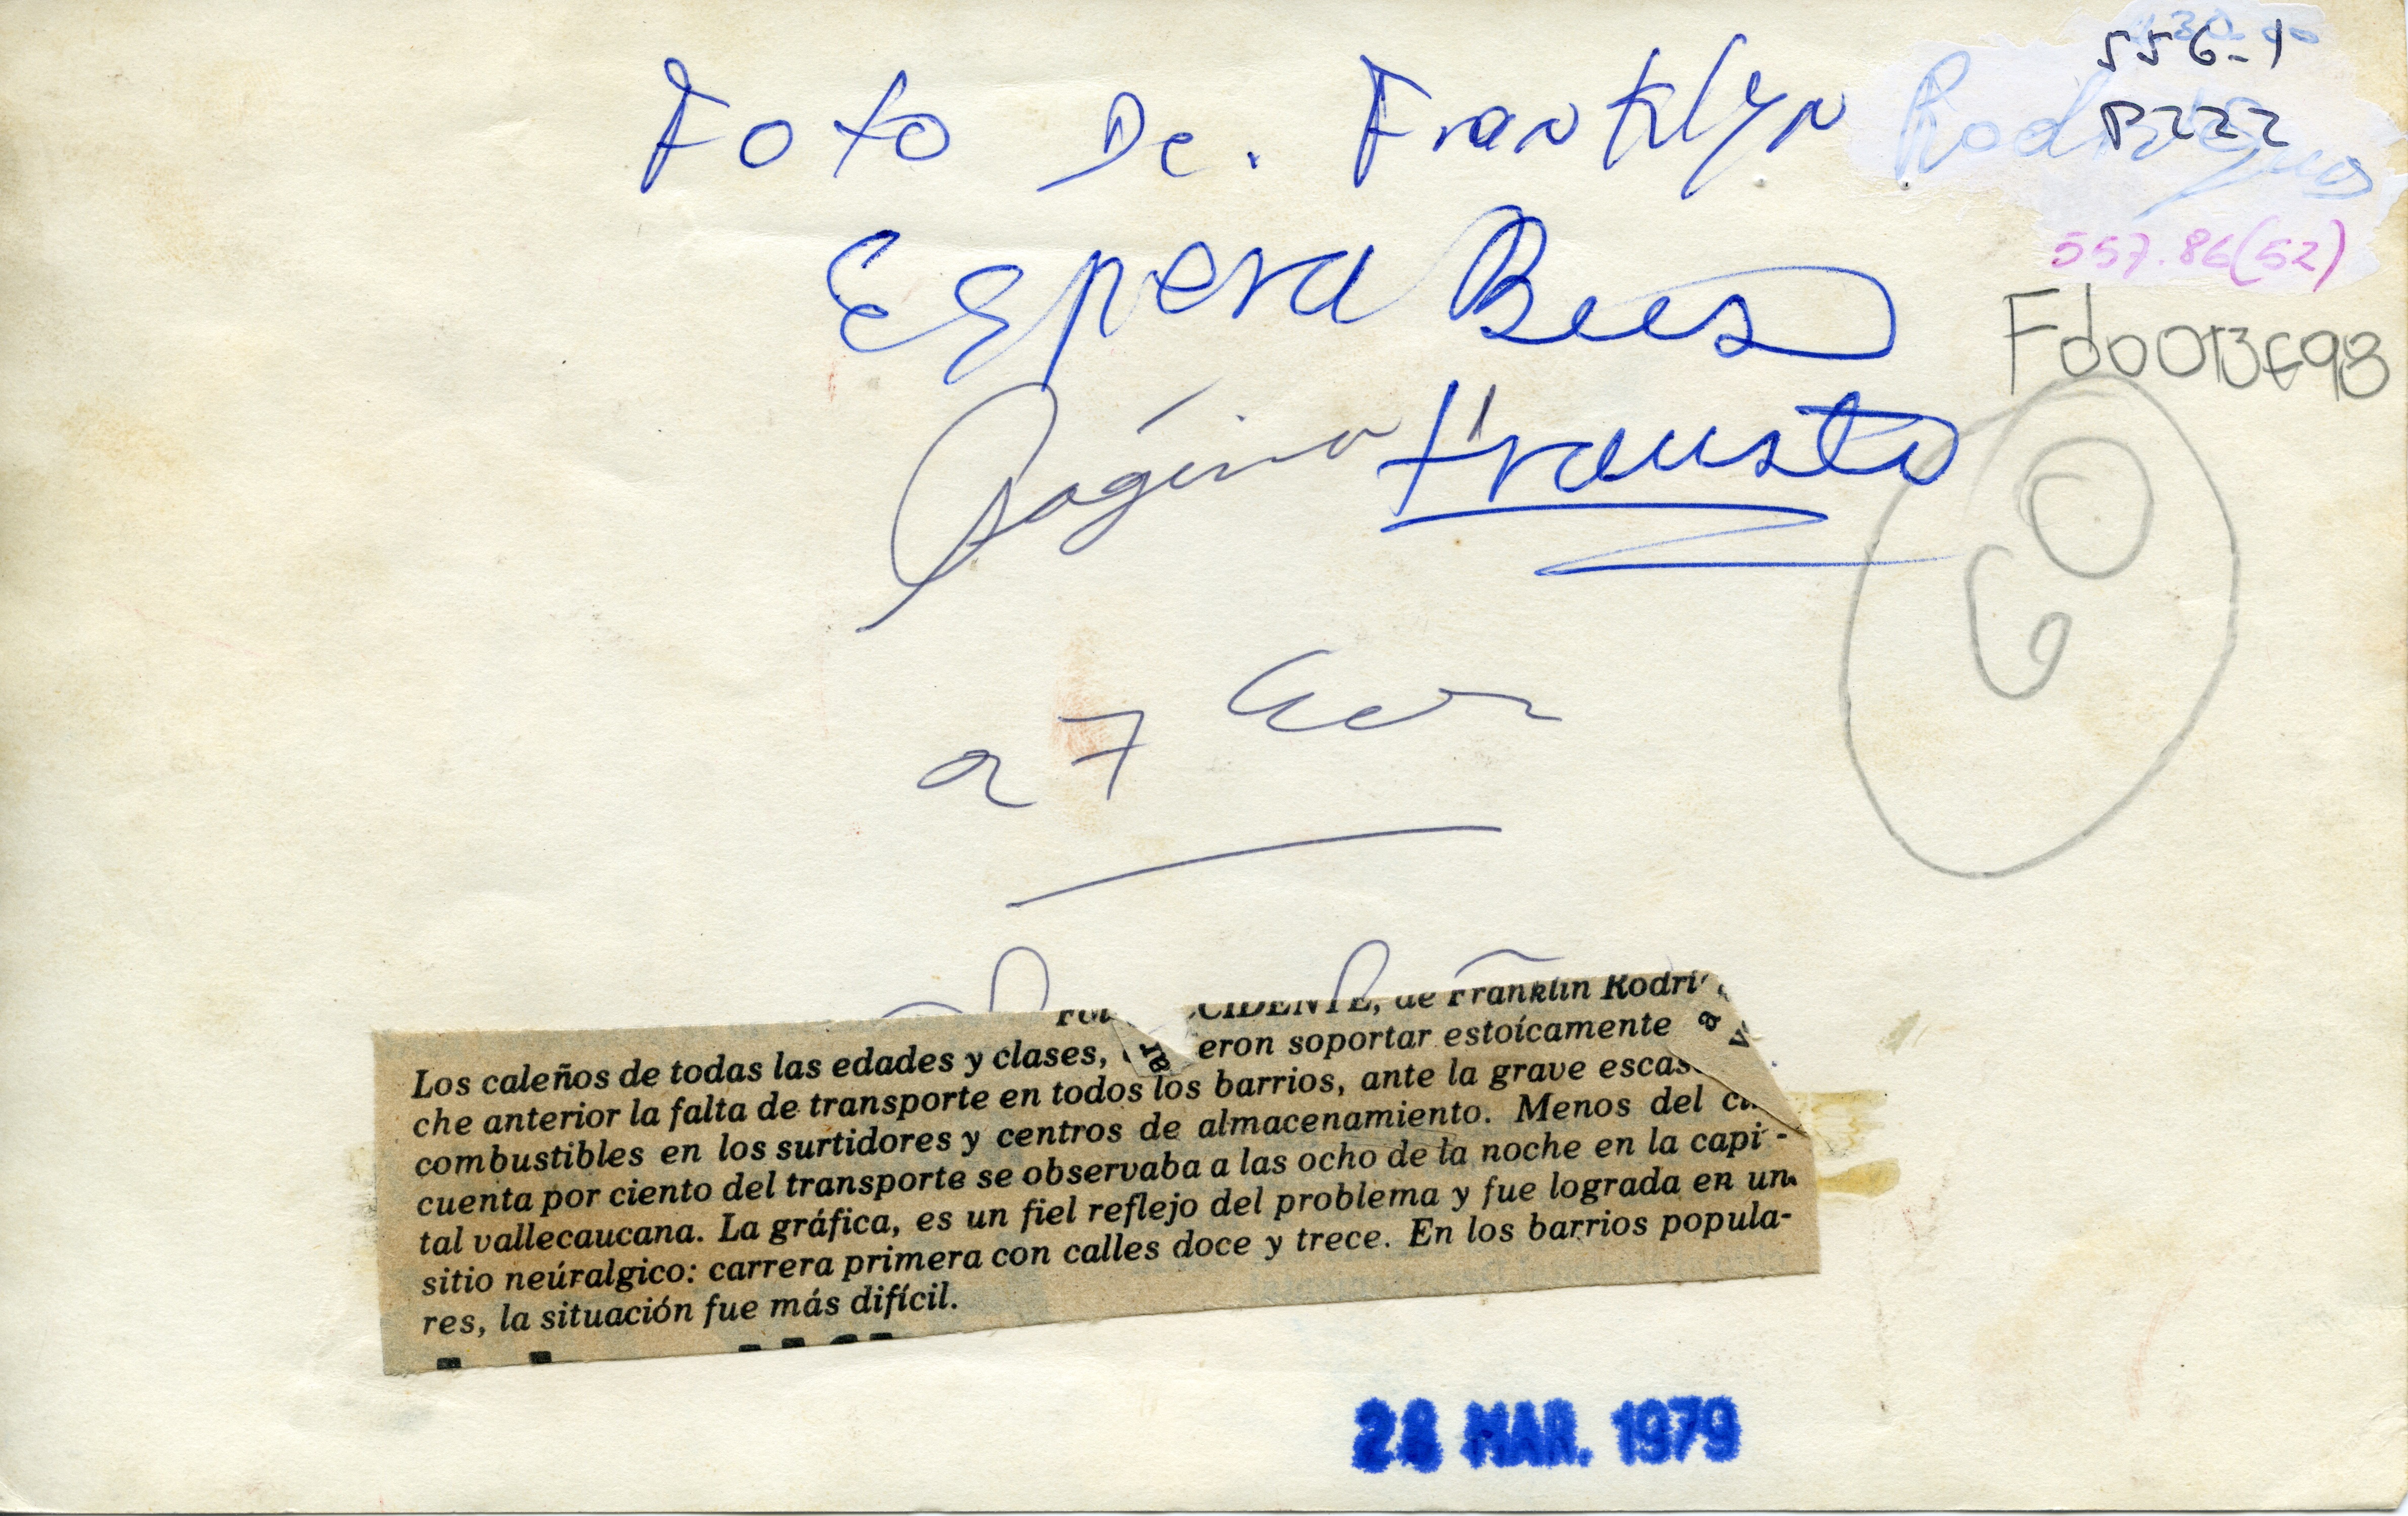 Foto De. Franklyn Rodriguez
556-1
P222
557.86(52)
Espera Bues
Fdo013698
Página Frausto
a 7 Col
Fot CIDENTE, de Franklin Rodri
Los caleños de todas las edades y clases, eron soportar estoícamente
che anterior la falta de transporte en todos los barrios, ante la grave escas
combustibles en los surtidores y centros de almacenamiento. Menos del ci
cuenta por ciento del transporte se observaba a las ocho de la noche en la capi-
tal vallecaucana. La gráfica, es un fiel reflejo del problema y fue lograda en un
sitio neúralgico: carrera primera con calles doce y trece. En los barrios popula-
res, la situación fue más difícil.
28 MAR. 1979